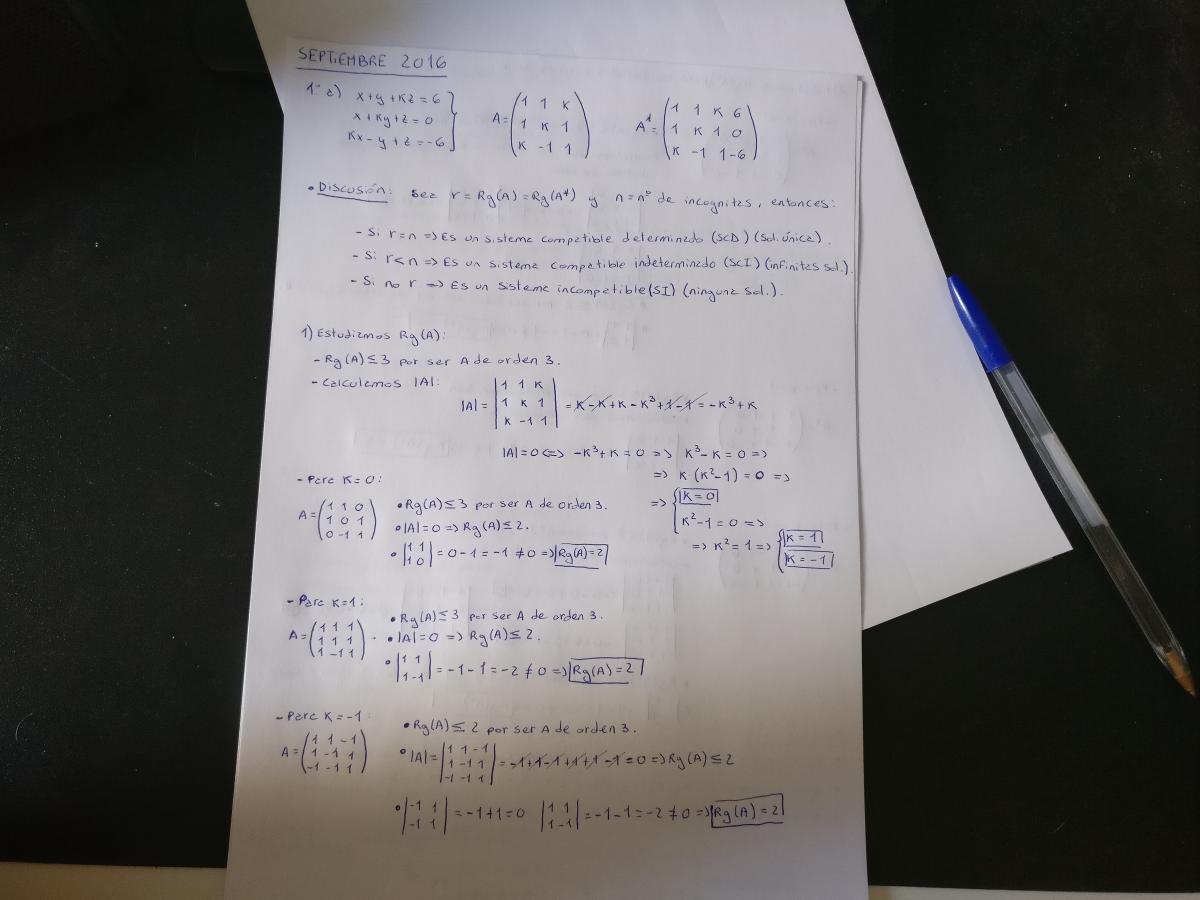 SEPTIEMBRE 2016
1.- a) x+y+Kz=6
x+Ky+z=0
Kx-y+z=-6
A=(1 1 K
1 K 1
K -1 1)
A*=(1 1 K 6
1 K 1 0
K -1 1 -6)
• DISCUSIÓN: Sea r=Rg(A)=Rg(A*) y n=nº de incognitas, entonces:
- Si r=n => Es un sistema compatible determinado (SCD) (Sol. única).
- Si r<n => Es un sistema compatible indeterminado (SCI) (infinitas sol.).
- Si no r => Es un sistema incompatible (SI) (ninguna sol.).
1) Estudiamos Rg(A):
- Rg(A)≤3 por ser A de orden 3.
- Calculamos |A|:
|A|=|1 1 K
1 K 1
K -1 1| = K-K+K-K³+1-1=-K³+K
|A|=0 <=> -K³+K=0 => K³-K=0 =>
=> K·(K²-1)=0 =>
=> {K=0
K²-1=0 =>
=> K²=1 => {K=1
K=-1
- Para K=0:
A=(1 1 0
1 0 1
0 -1 1)
• Rg(A)≤3 por ser A de orden 3.
• |A|=0 => Rg(A)≤2.
• |1 1
1 0| = 0-1=-1≠0 => Rg(A)=2
- Para K=1:
A=(1 1 1
1 1 1
1 -1 1)
• Rg(A)≤3 por ser A de orden 3.
• |A|=0 => Rg(A)≤2.
• |1 1
1 -1| = -1-1=-2≠0 => Rg(A)=2
- Para K=-1:
A=(1 1 -1
1 -1 1
-1 -1 1)
• Rg(A)≤2 por ser A de orden 3.
• |A|=|1 1 -1
1 -1 1
-1 -1 1| = -1+1-1+1+1-1=0 => Rg(A)≤2
• |-1 1
-1 1| = -1+1=0 |1 1
1 -1| = -1-1=-2≠0 => Rg(A)=2